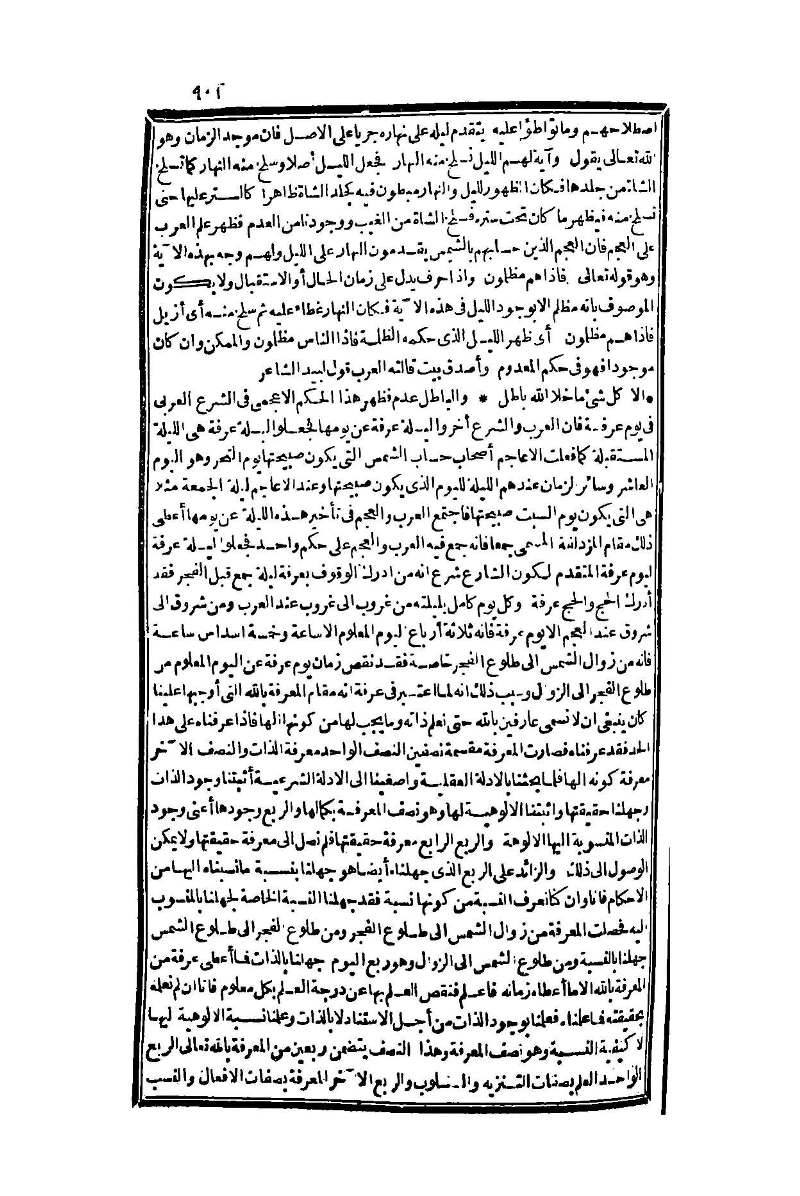 ٩٠٢
اصطلاحهم وما تواطؤا عليه يتقدم ليله على نهاره جريا على الاصل فان موجد الزمان وهو ا
لله تعالى يقول وآية لهم الليل نسلخ منه النهار فجعل الليل أصلا وسلخ منه النهار كما تسلخ
الشاة من جلدها فكان الظهور لليل والنهار مبطون فيه كجلد الشاة ظاهرا كالستر عليها حتى
تسلخ منه فيظهر ما كان تحت ستره فسلخ الشاة من الغيب ووجودنا من العدم فظهر علم العرب
على العجم فان العجم الذين حسابهم بالشمس يقدمون النهار على الليل ولهم وجه بهذه الآية
وهو قوله تعالى فاذا هم مظلمون واذا حرف يدل على زمان الحال أو الاستقبال ولا يكون
الموصوف بانه مظلم الا بوجود الليل في هذه الآية فكان النهار غطاء عليه ثم سلخ منه أى أزيل
فاذا هم مظلمون أى ظهر الليل الذى حكمه الظلمة فاذا الناس مظلمون والممكن وان كان
موجودا فهو فى حكم المعدوم وأصدق بيت قالته العرب قول لبيد الشاعر
* الا كل شئ ما خلا الله باطل * والباطل عدم فظهر هذا الحكم الاعجمى فى الشرع العربى
فى يوم عرفة فان العرب والشرع أخر والليلة عرفة عن يومها فجعلوا ليلة عرفة هى الليلة
المستقبلة كما فعلت الاعاجم أصحاب حساب الشمس التى يكون صبيحتها يوم النحر وهو اليوم
العاشر وسائر الزمان عندهم الليلة لليوم الذى يكون صبيحتها وعند الاعاجم ليلة الجمعة مثلا
هى التى يكون يوم السبت صبيحتها فاجتمع العرب والعجم فى تأخير هذه الليلة عن يومها أعطى
ذلك مقام المزدلفة المسمى جمعا فانه جمع فيه العرب والعجم على حكم واحد فجعلوا ليلة عرفة
ليوم عرفة المتقدم لكون الشارع شرع انه من ادرك الوقوف بعرفة ليلة جمع قبل الفجر فقد
أدرك الحج والحج عرفة وكل يوم كامل بليلته من غروب الى غروب عند العرب ومن شروق الى
شروق عند العجم الا يوم عرفة فانه ثلاثة أرباع اليوم المعلوم الا ساعة وخمسة اسداس ساعة
فانه من زوال الشمس الى طلوع الفجر خاصة فقد نقص زمان يوم عرفة عن اليوم المعلوم من
طلوع الفجر الى الزوال وسبب ذلك انه لما اعتبر فى عرفة انه مقام المعرفة بالله التى أوجبها علينا
كان ينبغى ان لا نسمى عارفين بالله حتى نعلم ذاته وما يجب لها من كونها الها فاذا عرفناه على هذا
الحد فقد عرفناه فصارت المعرفة مقسمة نصفين النصف الواحد معرفة الذات والنصف الآخر
معرفة كونه الها فلما بحثنا بالادلة العقلية واصغينا الى الادلة الشرعية أثبتنا وجود الذات
وجهلنا حقيقتها واثبتنا الالوهية لها وهو نصف المعرفة بكمالها والربع وجودها أعنى وجود
الذات المنسوبة اليها الالوهة والربع الرابع معرفة حقيقتها فلم نصل الى معرفة حقيقتها ولا يمكن
الوصول الى ذلك والزائد على الربع الذى جهلناه أيضا هو جهلنا بنسبة ما نسبناه اليها من
الاحكام فانا وان كنا نعرف النسبة من كونها نسبة فقد جهلنا النسبة الخاصة لجهلنا بالمنسوب
اليه فحصلت المعرفة من زوال الشمس الى طلوع الفجر ومن طلوع الفجر الى طلوع الشمس
جهلنا بالنسبة ومن طلوع الشمس الى الزوال وهو ربع اليوم جهلنا بالذات فما أعطى عرفة من
المعرفة بالله الا ما أعطاه زمانه فاعلم فنقص العلم بها عن درجة العلم بكل معلوم فانا ان لم نعلمه
بحقيقته فما علمناه فعلمنا بوجود الذات من أجل الاستناد لا بالذات وعلمنا نسبة الالوهية ليها
لا كيفية النسبة وهو نصف المعرفة وهذا النصف يتضمن ربعين من المعرفة بالله تعالى الربع
الواحد العلم بصفات التنزيه والسلوب والربع الآخر المعرفة بصفات الافعال والنسب